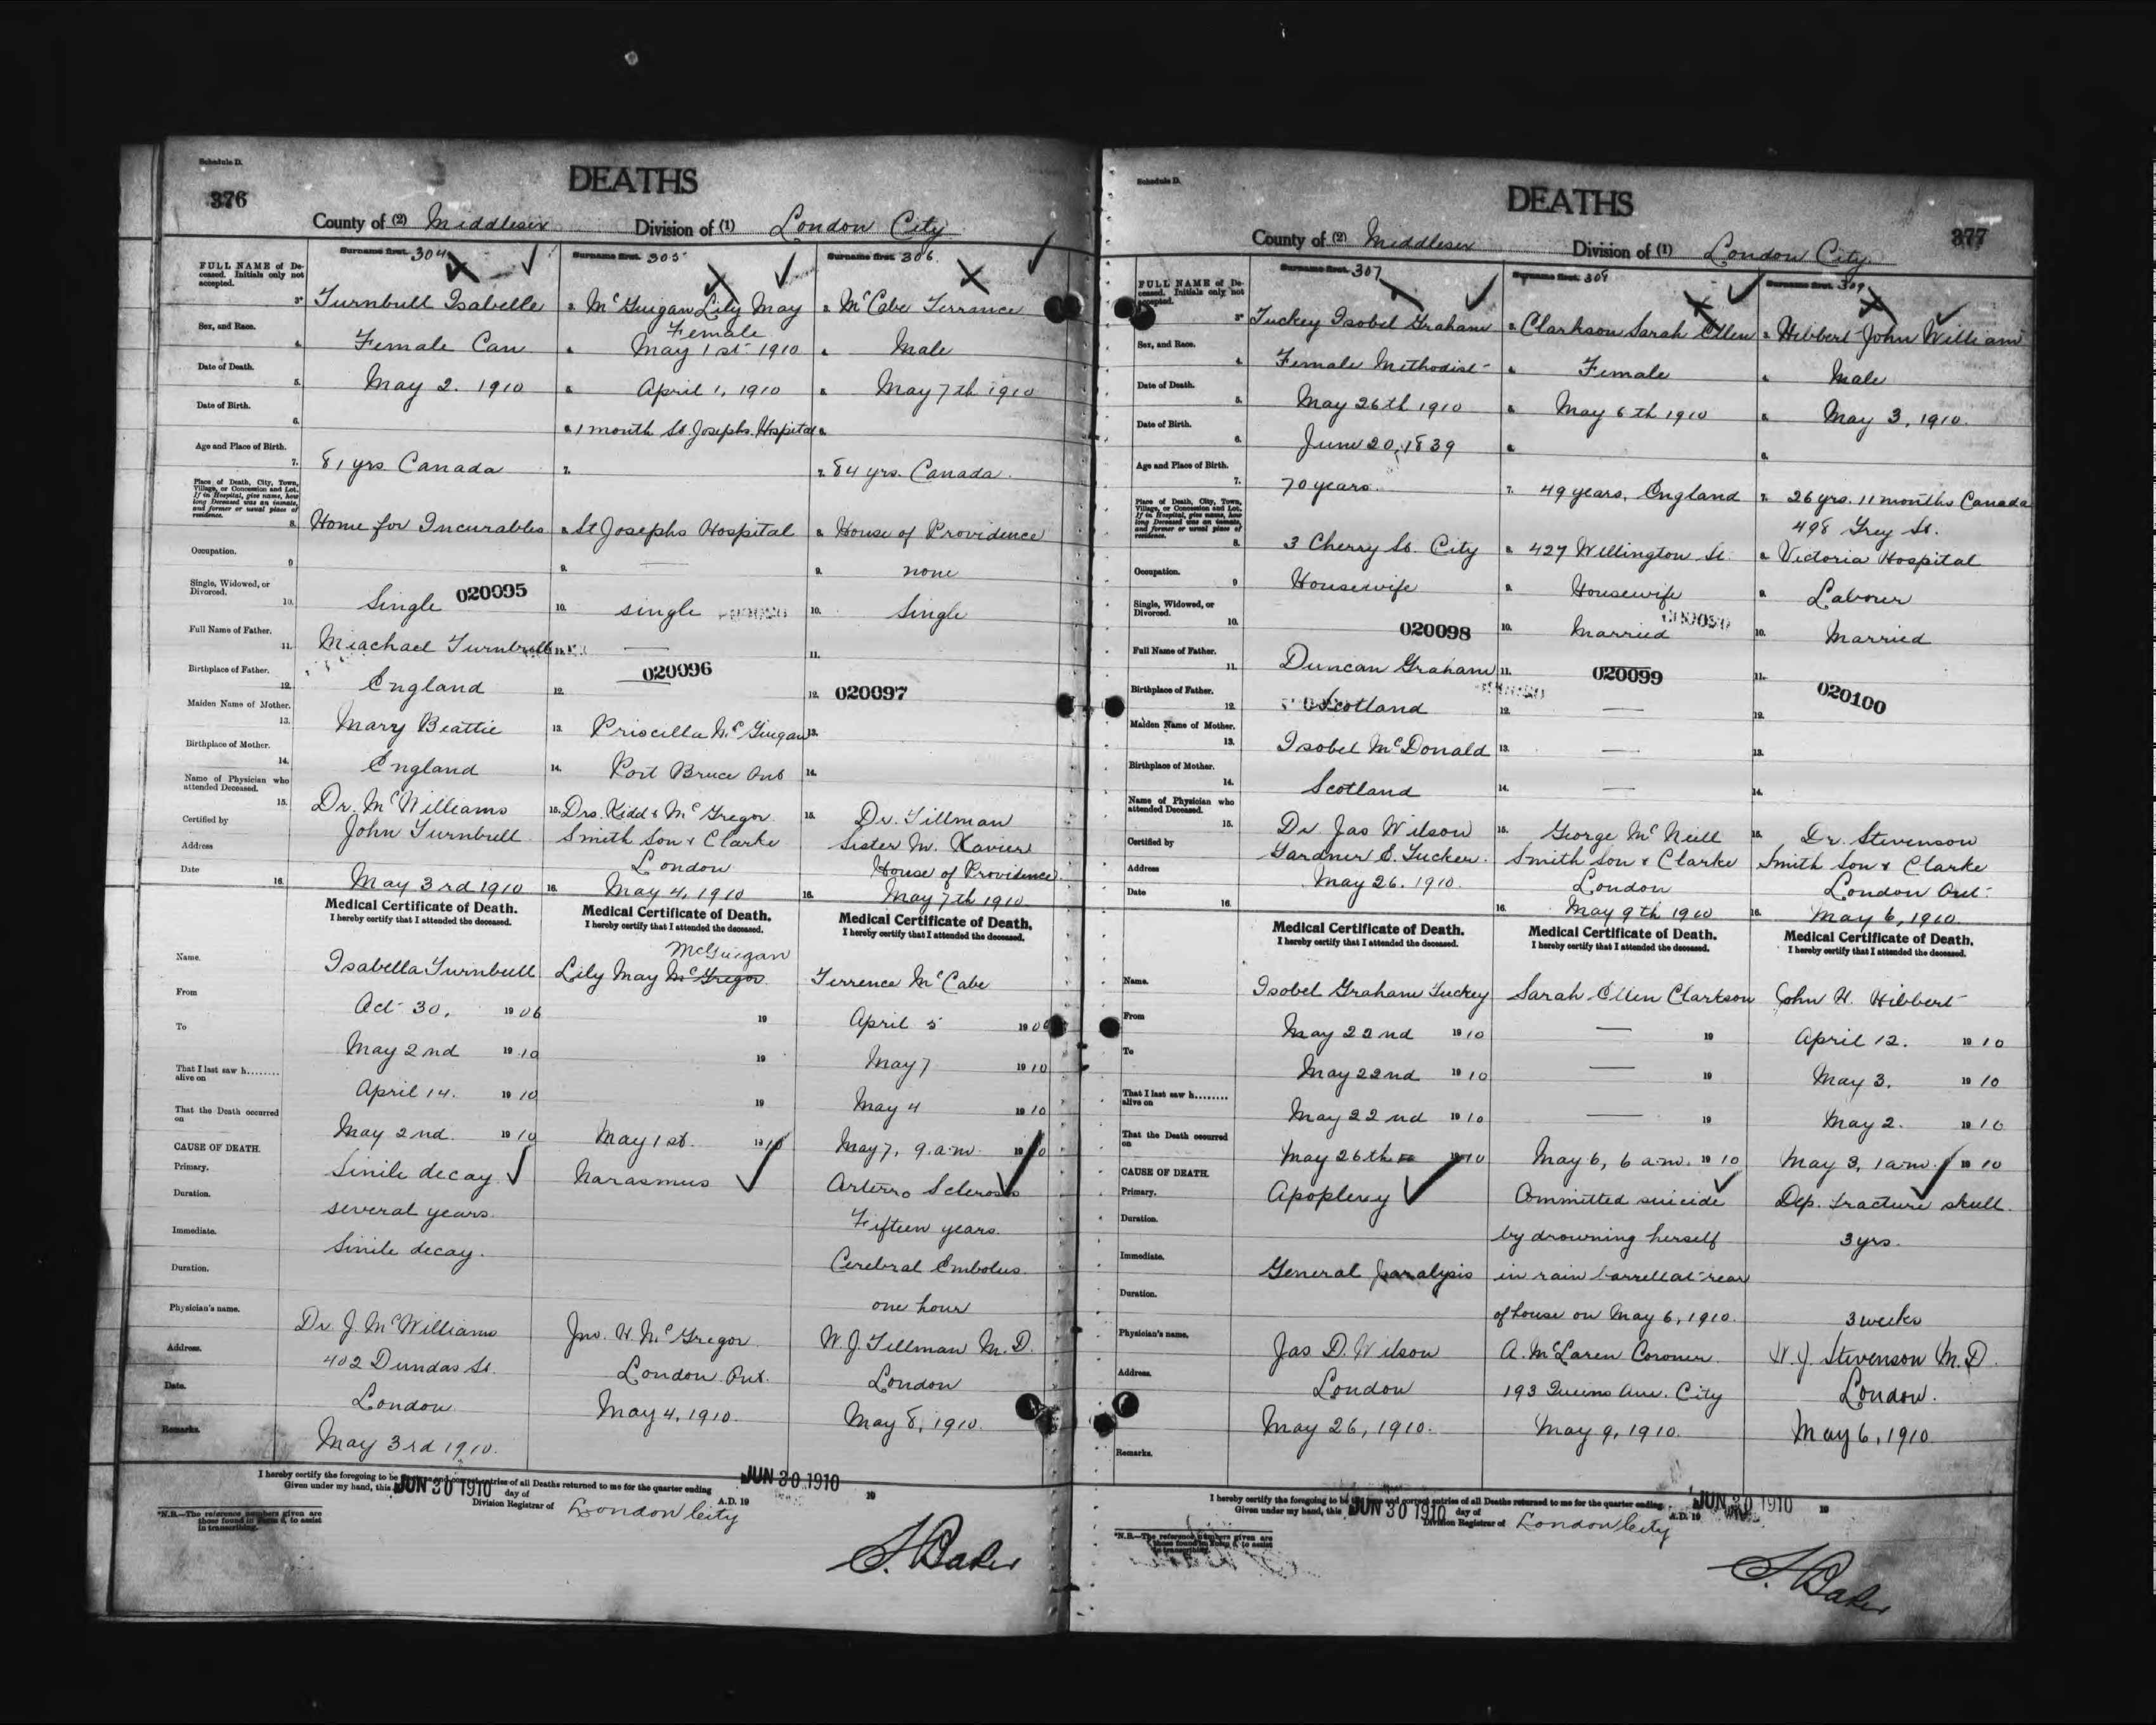 Schedule D.
376
DEATHS
County of (2) Middlesex Division of (1) London City
Surname first. 304 Surname first. 305 Surname first. 306
FULL NAME of Deceased. Initials only not accepted.
3. Turnbull Isabelle 3. McGuigan Lily May 3. McCabe Terrance
Female
Sex, and Race. 4. Female Can 4. May 1st 1910 4. Male
Date of Death. 5. May 2. 1910 5. April 1, 1910 5. May 7th 1910
Date of Birth. 6. 6. 1 month St. Josephs Hospital 6.
Age and Place of Birth. 7. 81 yrs Canada 7. 7. 84 yrs. Canada
Place of Death, City, Town, Village, or Concession and Lot. If in Hospital, give name, how long Deceased was an inmate, and former or usual place of residence.
8. Home for Incurables 8. St Josephs Hospital 8. House of Providence
Occupation. 9 9. — 9. none
Single, Widowed, or Divorced. 10. Single 020095 10. single 10. Single
Full Name of Father. 11. Miachael Turnbull 11. — 11.
020096
Birthplace of Father. 12. England 12. 12. 020097
Maiden Name of Mother. 13. Mary Beattie 13. Priscilla McGuigan 13.
Birthplace of Mother. 14. England 14. Port Bruce Ont 14.
Name of Physician who attended Deceased. 15. Dr. McWilliams 15. Drs. Kidd & McGregor 15. Dr. Tillman
Certified by John Turnbull Smith Son & Clarke Sister M. Xavier
Address London House of Providence
Date 16. May 3rd 1910 16. May 4, 1910 16. May 7th 1910
Medical Certificate of Death. Medical Certificate of Death. Medical Certificate of Death.
I hereby certify that I attended the deceased. I hereby certify that I attended the deceased. I hereby certify that I attended the deceased.
McGuigan
Name. Isabella Turnbull Lily May McGregor Terrence McCabe
From Oct 30, 1906 19 April 5 1906
To May 2nd 1910 19 May 7 1910
That I last saw h........ alive on April 14. 1910 19 May 4 1910
That the Death occurred on May 2nd. 1910 May 1st. 1910 May 7, 9. a.m. 1910
CAUSE OF DEATH.
Primary. Sinile decay Marasmus Arterro Sclerosis
Duration. several years Fifteen years.
Immediate. Sinile decay. Cerebral Embolus
Duration. one hour
Physician's name. Dr. J. McWilliams Jno. W. McGregor W. J. Tillman M.D.
Address. 402 Dundas St. London. Ont. London
Date. London May 4, 1910. May 8, 1910.
Remarks. May 3rd 1910.
I hereby certify the foregoing to be the true and correct entries of all Deaths returned to me for the quarter ending JUN 30 1910 19
Given under my hand, this JUN 30 1910 day of A.D. 19
Division Registrar of London City
*N.B.—The reference numbers given are those found in Form 6, to assist in transcribing.
S. Baker
Schedule D.
DEATHS
377
County of (2) Middlesex Division of (1) London City
Surname first. 307 Surname first. 308 Surname first. 309
FULL NAME of Deceased. Initials only not accepted.
3. Tuckey Isobel Graham 3. Clarkson Sarah Ellen 3. Hibbert John William
Sex, and Race. 4. Female Methodist 4. Female 4. Male
Date of Death. 5. May 26th 1910 5. May 6th 1910 5. May 3, 1910.
Date of Birth. 6. June 20, 1839 6. 6.
Age and Place of Birth. 7. 70 years. 7. 49 years, England 7. 26 yrs. 11 months Canada
Place of Death, City, Town, Village, or Concession and Lot. If in Hospital, give name, how long Deceased was an inmate, and former or usual place of residence.
498 Grey St.
8. 3 Cherry St. City 8. 427 Wellington St. 8. Victoria Hospital
Occupation. 9 Housewife 9. Housewife 9. Labourer
Single, Widowed, or Divorced. 10. 020098 10. Married 10. Married
Full Name of Father. 11. Duncan Graham 11. 020099 11. 020100
Birthplace of Father. 12. Scotland 12. — 12.
Maiden Name of Mother. 13. Isobel McDonald 13. — 13.
Birthplace of Mother. 14. Scotland 14. — 14.
Name of Physician who attended Deceased. 15. Dr Jas Wilson 15. George McNeill 15. Dr. Stevenson
Certified by Gardner E. Tucker. Smith Son & Clarke Smith Son & Clarke
Address May 26. 1910. London London Ont.
Date 16. 16. May 9th 1910 16. May 6, 1910.
Medical Certificate of Death. Medical Certificate of Death. Medical Certificate of Death.
I hereby certify that I attended the deceased. I hereby certify that I attended the deceased. I hereby certify that I attended the deceased.
Name. Isobel Graham Tuckey Sarah Ellen Clarkson John W. Hibbert
From May 22nd 1910 — 19 April 12. 1910
To May 22nd 1910 — 19 May 3. 1910
That I last saw h........ alive on May 22nd 1910 — 19 May 2. 1910
That the Death occurred on May 26th 1910 May 6, 6 a.m. 1910 May 3, 1 a.m. 1910
CAUSE OF DEATH.
Primary. Apoplexy Committed suicide Dep. fracture skull.
Duration. by drowning herself 3 yrs.
Immediate. General paralysis in rain barrell at rear
Duration. of house on May 6, 1910. 3 weeks
Physician's name. Jas D. Wilson A. McLaren Coroner. W. J. Stevenson M.D.
Address. London 193 Queens Ave. City London.
May 26, 1910. May 9, 1910. May 6, 1910
Remarks.
I hereby certify the foregoing to be the true and correct entries of all Deaths returned to me for the quarter ending JUN 30 1910 19
Given under my hand, this JUN 30 1910 day of A.D. 19
Division Registrar of London City
*N.B.—The reference numbers given are those found in Form 6, to assist in transcribing.
S. Baker